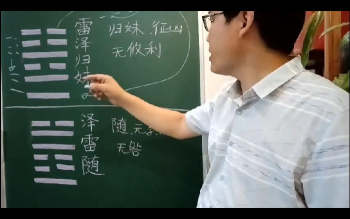 雷泽归妹
归妹,征凶
无攸利
泽雷随
随,元
无咎